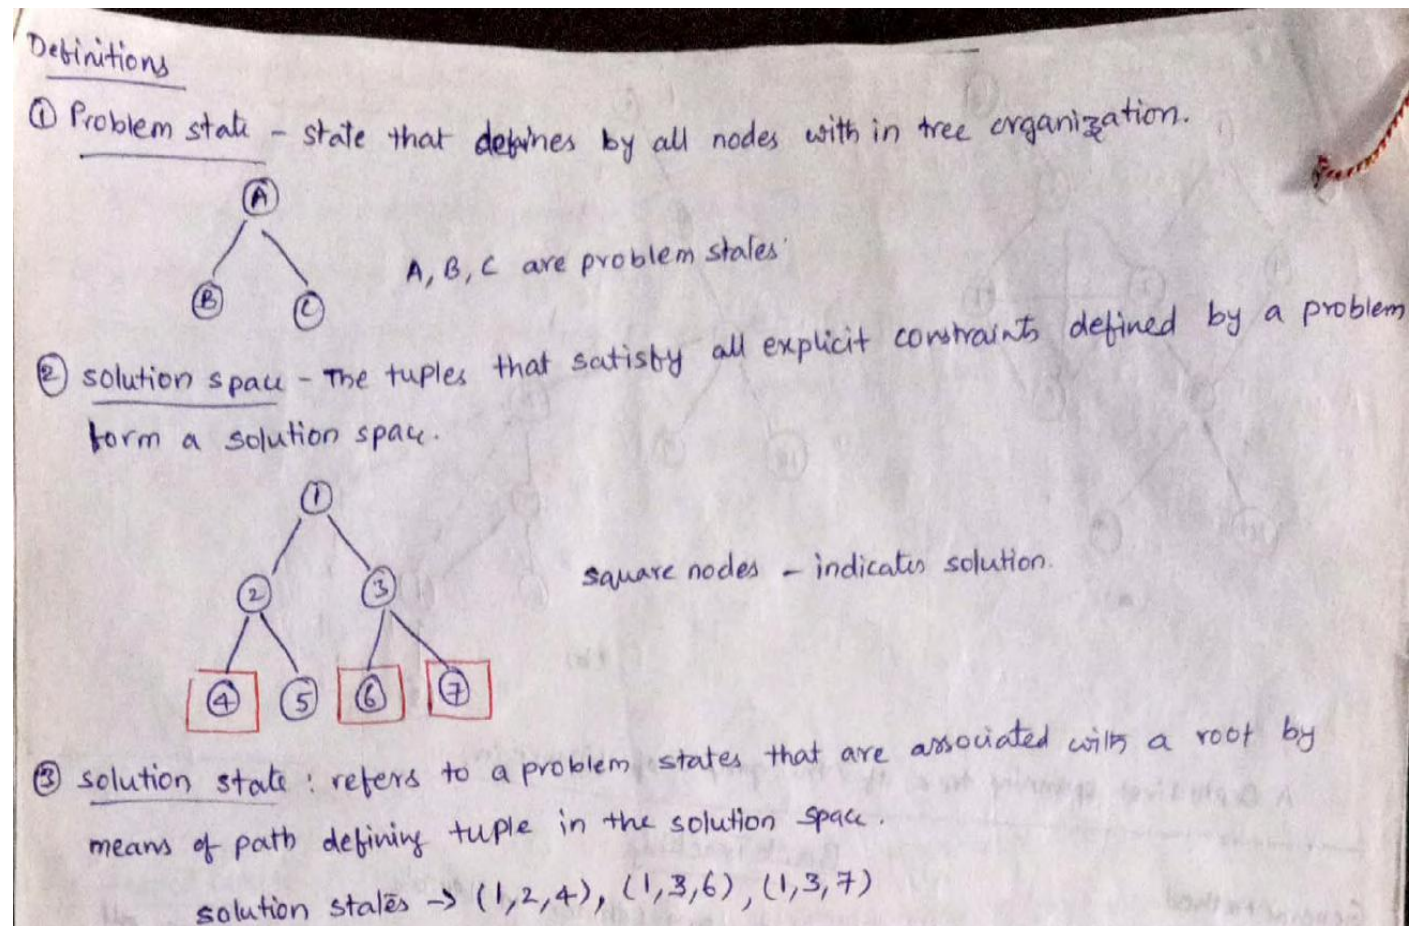 Definitions
① Problem state - state that defines by all nodes with in tree organization.
A
A, B, C are problem states
B C
② solution space - The tuples that satisfy all explicit constraints defined by a problem
form a solution space.
1
2 3
square nodes - indicates solution.
4 5 6 7
③ solution state : refers to a problem states that are associated with a root by
means of path defining tuple in the solution space.
solution states → (1,2,4), (1,3,6), (1,3,7)